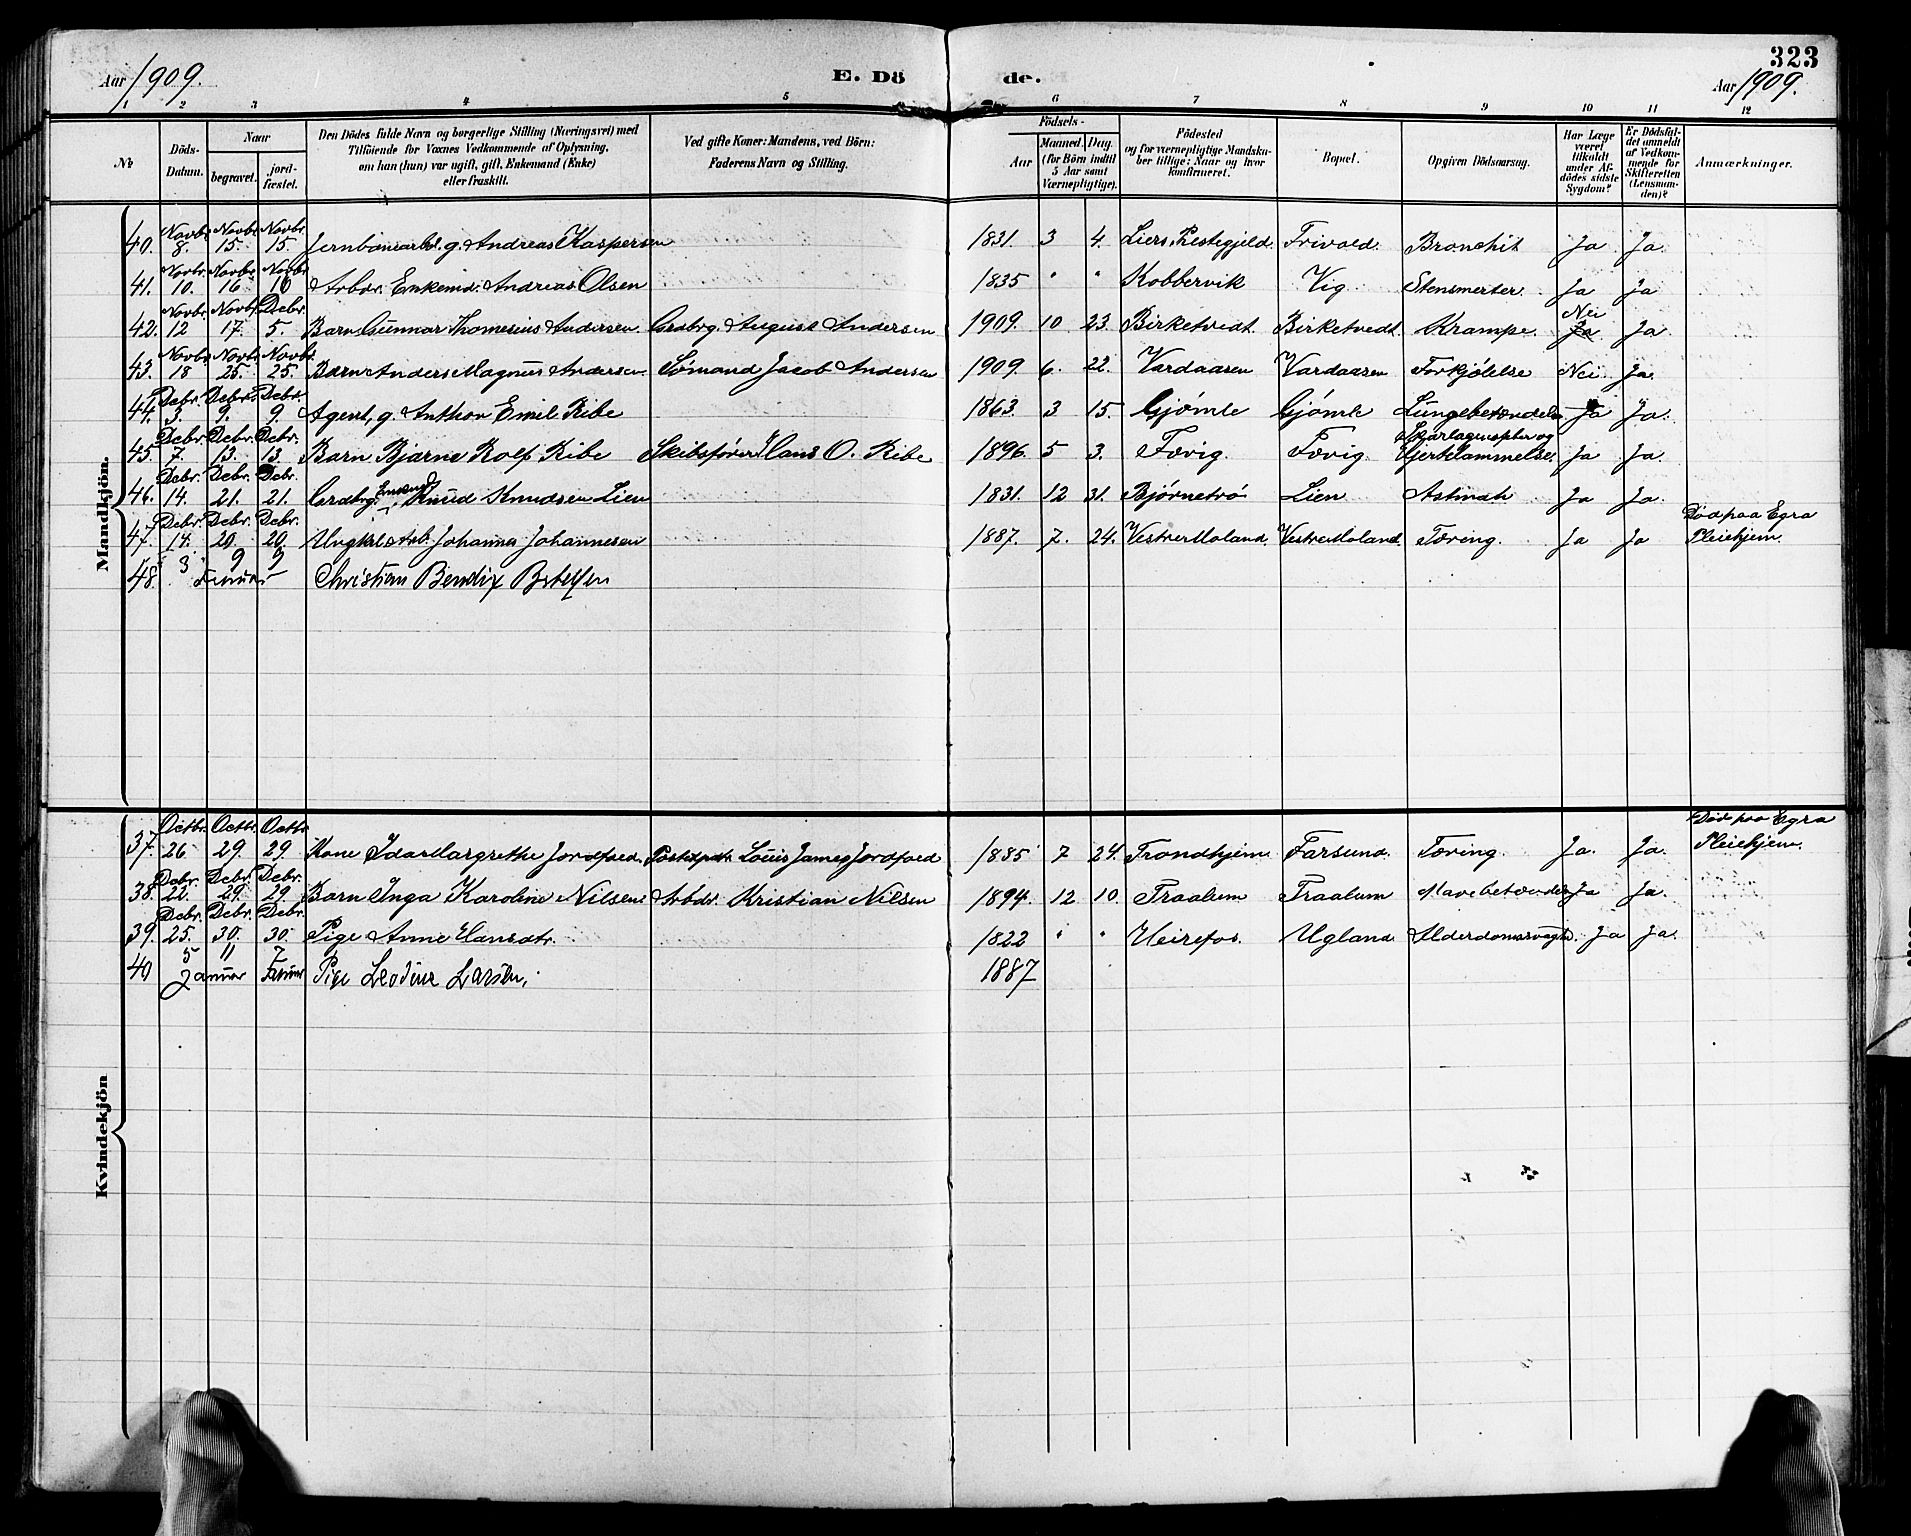 323
Aar 1909. E. Dö de. Aar 1909.
1 2 3 4 5 6 7 8 9 10 11 12
№ Döds-Datum. Naar begravet. jord-fæstet. Den Dödes fulde Navn og borgerlige Stilling (Næringsvei) med Tilföiende for Voxnes Vedkommende af Oplysning, om han (hun) var ugift, gift, Enkemand (Enke) eller fraskilt. Ved gifte Koner: Mandens, ved Börn: Faderens Navn og Stilling. Födsels- Aar Maaned. Dag. (for Börn indtil 5 Aar samt Værnepligtige). Födested og for værnepligtige Mandskaber tillige: Naar og hvor konfirmeret. Bopæl. Opgiven Dödsaarsag. Har Læge været tilkaldt under Afdödes sidste Sygdom? Er Dödsfaldet anmeldt af Vedkommende for Skifteretten (Lensmanden)? Anmærkninger.
Mandkjön.
40. Novbr. 8. Novbr. 15 Novbr. 15 Jernbanearbd. g. Andreas Kaspersen 1831. 3 4. Liers Prestegjeld. Frivold. Bronchit Ja Ja.
41. Novbr. 10. Novbr. 16 Novbr. 16 Arbdr. Enkemd. Andreas Olsen 1835 " " Kobbervik Vig Stensmerter. Ja Ja
42. Novbr. 12 Novbr. 17. Debr. 5. Barn Gunnar Thomesius Andersen Grdbrg. August Andersen 1909. 10 23. Birketvedt. Birketvedt. Krampe. Nei Ja Ja.
43. Novbr. 18 Novbr. 25. Novbr. 25. Barn Anders Magnus Andersen. Sømand Jacob Andersen 1909. 6. 22. Vardaasen Vardaasen Forkjølelse Nei. Ja.
44. Debr. 3. Debr. 9. Debr. 9. Agent, g. Anthon Emil Ribe 1863. 3 15. Gjømle Gjømle Lungebetændelse Ja Ja.
45. Debr. 7. Debr. 13. Debr. 13. Barn Bjarne Rolf Ribe Skibsfører Hans O. Ribe 1896. 5 3. Fævig. Fævig. Skarlagensfeber og Hjertelammelse. Ja Ja.
46. Debr. 14. Debr. 21. Debr. 21. Grdbrg. Enkemd. Knud Knudsen Lien 1831. 12 31. Bjørnetrø Lien Astmah Ja Ja.
47. Debr. 14. Debr. 20. Debr. 20. Ungkl. Arb. Johannes Johannesen 1887. 7. 24. Vestre Moland. Vestre Moland. Tæring. Ja Ja Død paa Egra Pleiehjem.
48. 3 9 9 Christian Bendix
Kvindekjön
37. Octbr. 26 Octbr. 29. Octbr. 29. Kone Ida Margrethe Louis James 1885 7 24. Trondhjem Farsund. Tæring. Ja. Ja. Død paa Egra Pleiehjem.
38. Debr. 22. Debr. 29. Debr. 29. Barn Inga Karoline Nilsen Arbdr. Kristian Nilsen 1894. 12 10. Traalum Traalum Mavebetændelse Ja Ja.
39. Debr. 25. Debr. 30. Debr. 30. Pige Anne Hansdtr. 1822 " " Heirefos. Ugland Alderdomssvaghd. Ja Ja.
40 5 11 Januar 7 Pige Larsen. 1887